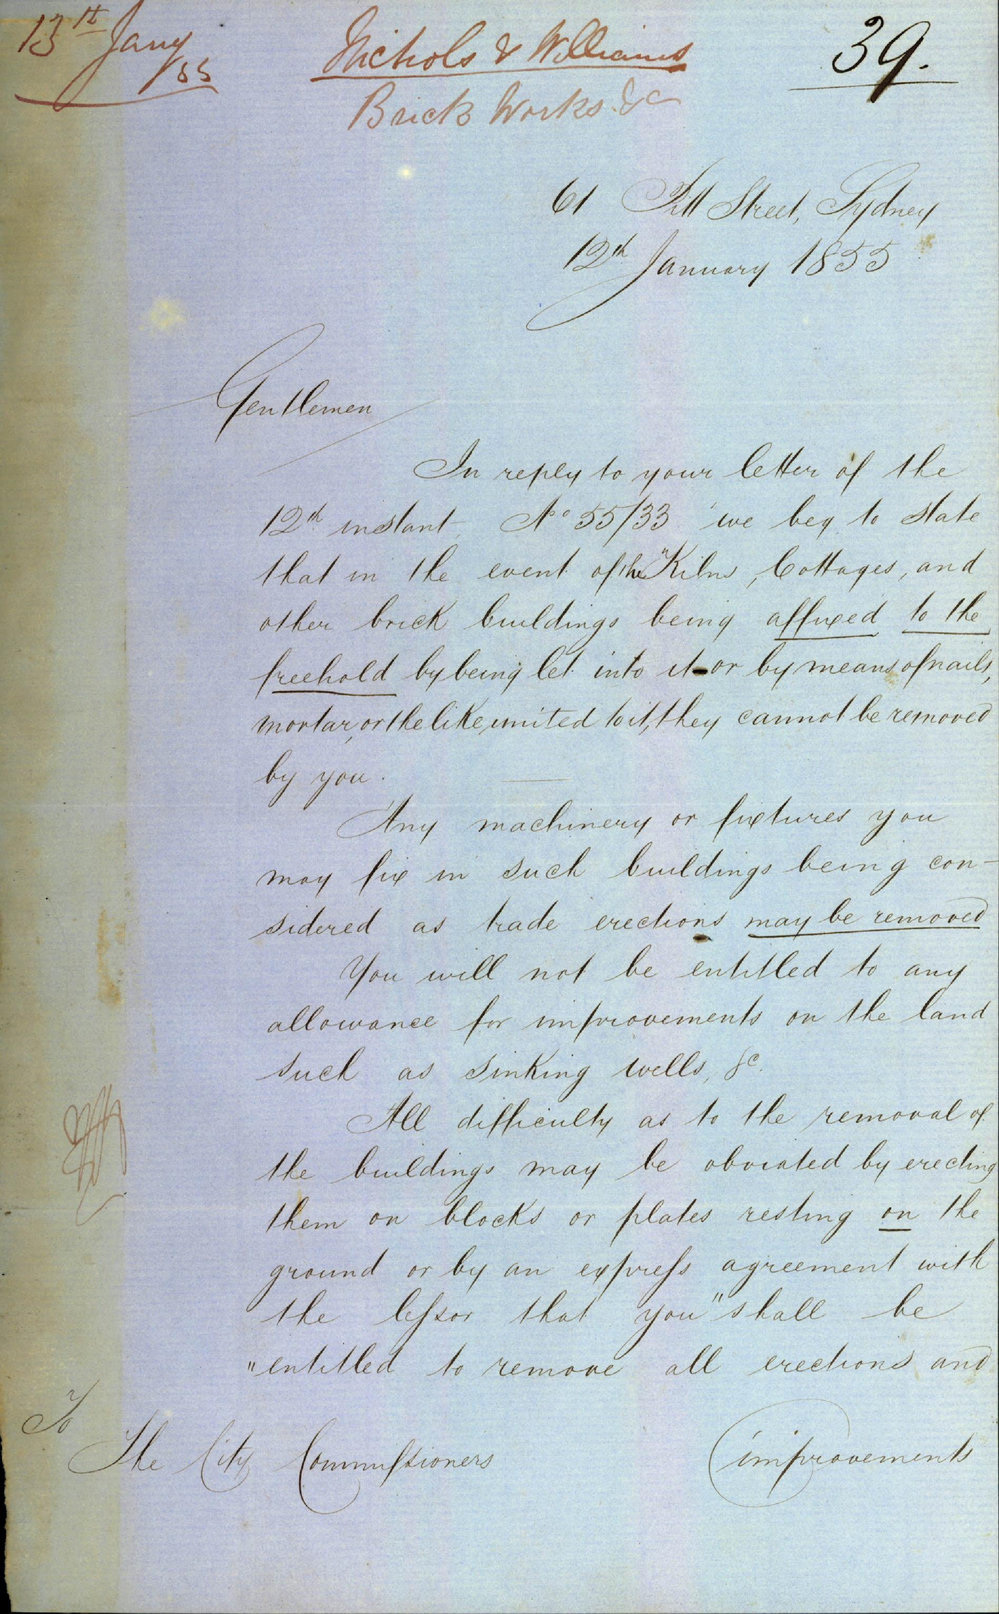 13th Jany
55
Nichols & Williams
Brick Works &c
39.
61 Pitt Street, Sydney
12th January 1855
Gentlemen
In reply to your letter of the
12th instant No 55/33 we beg to state
that in the event of the "Kilns, Cottages, and
other brick buildings being affixed to the
freehold by being let into it or by means of nails,
mortar, or the like, united to it, they cannot be removed
by you.
Any machinery or fixtures you
may fix in such buildings being con-
sidered as trade erections may be removed
You will not be entitled to any
allowance for improvements on the land
such as sinking wells, &c.
All difficulty as to the removal of
the buildings may be obviated by erecting
them on blocks or plates resting on the
ground or by an express agreement with
the lessor that you "shall be
"entitled to remove all erections and
To
The City Commissioners
improvements